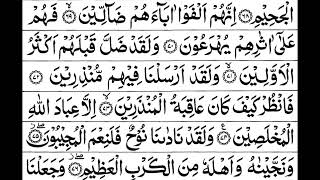 الْجَحِيْمِ ﴿٦٨﴾ اِنَّهُمْ اَلْفَوْا اٰبَآءَهُمْ ضَآلِّيْنَ ﴿٦٩﴾ فَهُمْ
عَلٰٓى اٰثٰرِهِمْ يُهْرَعُوْنَ ﴿٧٠﴾ وَلَقَدْ ضَلَّ قَبْلَهُمْ اَكْثَرُ
الْاَوَّلِيْنَ ﴿٧١﴾ وَلَقَدْ اَرْسَلْنَا فِيْهِمْ مُّنْذِرِيْنَ ﴿٧٢﴾
فَانْظُرْ كَيْفَ كَانَ عَاقِبَةُ الْمُنْذَرِيْنَ ﴿٧٣﴾ اِلَّا عِبَادَ اللّٰهِ
الْمُخْلَصِيْنَ ﴿٧٤﴾ وَلَقَدْ نَادٰىنَا نُوْحٌ فَلَنِعْمَ الْمُجِيْبُوْنَ ﴿٧٥﴾
وَنَجَّيْنٰهُ وَاَهْلَهٗ مِنَ الْكَرْبِ الْعَظِيْمِ ﴿٧٦﴾ وَجَعَلْنَا